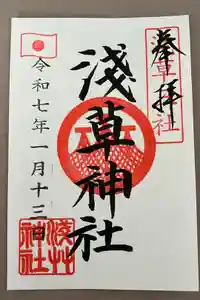 奉拝
淺草神社
令和七年一月十三日
淺草
神社